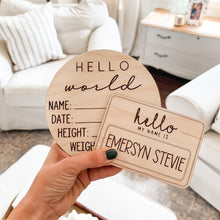 HELLO
world
NAME:
DATE:
HEIGHT:
WEIGH
hello
MY NAME IS
EMERSYN STEVIE